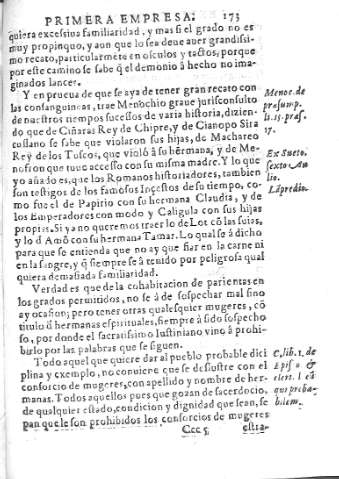 PRIMERA EMPRESA. 173
quiera excessiua familiaridad, y mas si el grado no es
muy propinquo, y aun que lo sea deue auer grandissi-
mo recato, particularmẽte en osculos y tactos, porque
por este camino se sabe q̃ el demonio à hecho no ima-
ginados lances.
Y en prueua de que se aya de tener gran recato con
las consanguineas, trae Menochio graue jurisconsulto
de nuestros tiempos sucessos de varia historia, dizien-
do que de Ciñaras Rey de Chipre, y de Cianopo Sira
cosano se sabe que violaron sus hijas, de Machareo
Rey de los Tuscos, que violó à su hermana, y de Me-
nofron que tuuo accesso con su misma madre. Y lo que
yo añado es, que los Romanos historiadores, tambien
son testigos de los famosos Incestos de su tiempo, co-
mo fue el de Papirio con su hermana Claudia, y de
los Emperadores con modo y Caligula con sus hijas
propias. Si ya no queremos traer lo de Lot cõ las suias,
y lo d Amõ con su hermana Tamar. Lo qual se à dicho
para que se entienda que no ay que fiar en la carne ni
en la sangre, y q̃ siempre se à tenido por peligrosa qual
quiera demasiada familiaridad.
Verdad es que de la cohabitacion de parientas en
los grados permitidos, no se à de sospechar mal sino
ay ocasion; pero tener otras qualesquier mugeres, cõ
titulo d hermanas espirituales, siempre à sido sospecho
so, por donde el sacratissimo Iustiniano vino à prohi-
birlo por las palabras que se siguen.
Todo aquel que quiere dar al pueblo probable dici
plina y exemplo, no conuiene que se desustre con el
consorcio de mugeres, con apellido y nombre de her-
manas. Todos aquellos pues que gozan de sacerdocio,
de qualquier estado, condicion y dignidad que sean, se
pan que le son prohibidos los consorcios de mugeres
Ccc 5 estra-
Menoc. de
presump.
li. 15. præs.
17.
Ex Sueto.
sexto Au
lio.
Lãpredio.
C. lib. 1. de
Epis. &
cleri. l. eũ
qui proba-
bilem.